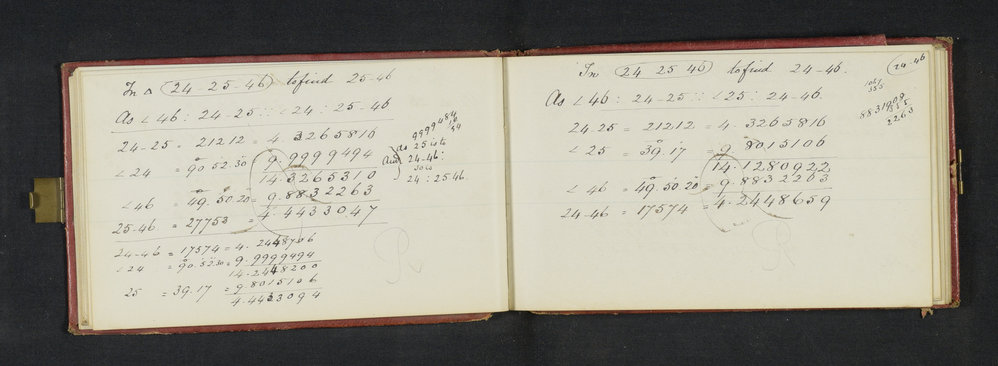 In △ (24-25-46) to find 25-46
As ∠46 : 24-25 :: ∠24 : 25-46
24-25 = 21212 = 4.3265816
∠24 = 90.52.30 9.9999494
14.3265310
∠46 = 49.50.20 = 9.8832263
25-46 = 27753 = 4.4433047
24-46 = 17574 = 4.2448706
∠24 = 90.52.30 = 9.9999494
14.2448200
25 = 39.17 9.8015106
4.4433094
9999484
10
94
As
25 is to
And 24-46 :
so is
24 : 25 46.
R
In (24 25 46) to find 24-46.
24.46
As ∠46 : 24-25 :: ∠25 : 24-46.
24-25 = 21212 = 4.3265816
∠25 = 39.17 = 9.8015106
14.1280922
∠46 = 49 50 20 = 9.8832263
24-46 = 17574 = 4.2448659
8831909
2263
R